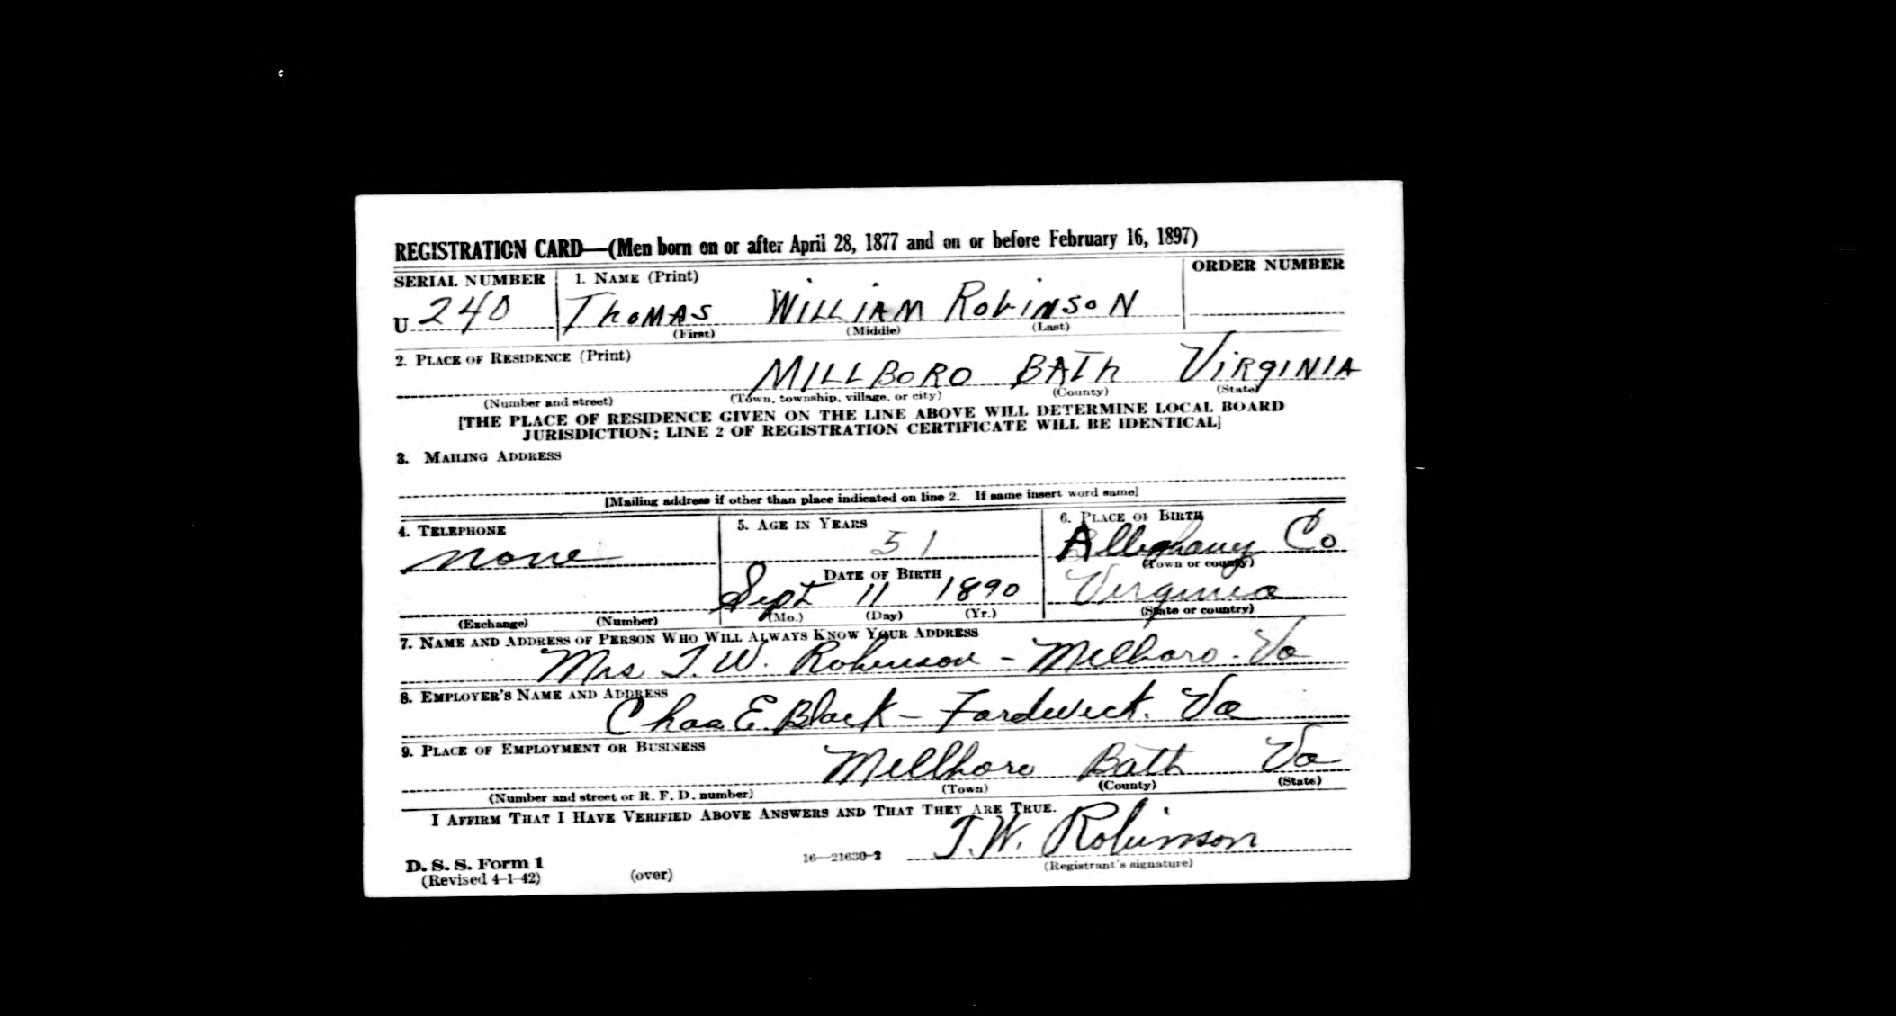 REGISTRATION CARD—(Men born on or after April 28, 1877 and on or before February 16, 1897)
SERIAL NUMBER 1. NAME (Print) ORDER NUMBER
U 240 THOMAS WILLIAM ROBINSON
(First) (Middle) (Last)
2. PLACE OF RESIDENCE (Print)
MILLBORO BATH VIRGINIA
(Number and street) (Town, township, village, or city) (County) (State)
[THE PLACE OF RESIDENCE GIVEN ON THE LINE ABOVE WILL DETERMINE LOCAL BOARD
JURISDICTION; LINE 2 OF REGISTRATION CERTIFICATE WILL BE IDENTICAL]
3. MAILING ADDRESS
[Mailing address if other than place indicated on line 2. If same insert word same]
4. TELEPHONE 5. AGE IN YEARS 6. PLACE OF BIRTH
none 51 Alleghany Co
DATE OF BIRTH (Town or county)
Sept 11 1890 Virginia
(Exchange) (Number) (Mo.) (Day) (Yr.) (State or country)
7. NAME AND ADDRESS OF PERSON WHO WILL ALWAYS KNOW YOUR ADDRESS
Mrs T. W. Robinson - Millboro. Va
8. EMPLOYER'S NAME AND ADDRESS
Chas E. Black - Fordwick. Va
9. PLACE OF EMPLOYMENT OR BUSINESS
Millboro Bath Va
(Number and street or R. F. D. number) (Town) (County) (State)
I AFFIRM THAT I HAVE VERIFIED ABOVE ANSWERS AND THAT THEY ARE TRUE.
T. W. Robinson
D. S. S. Form 1 16—21630-2 (Registrant's signature)
(Revised 4-1-42) (over)